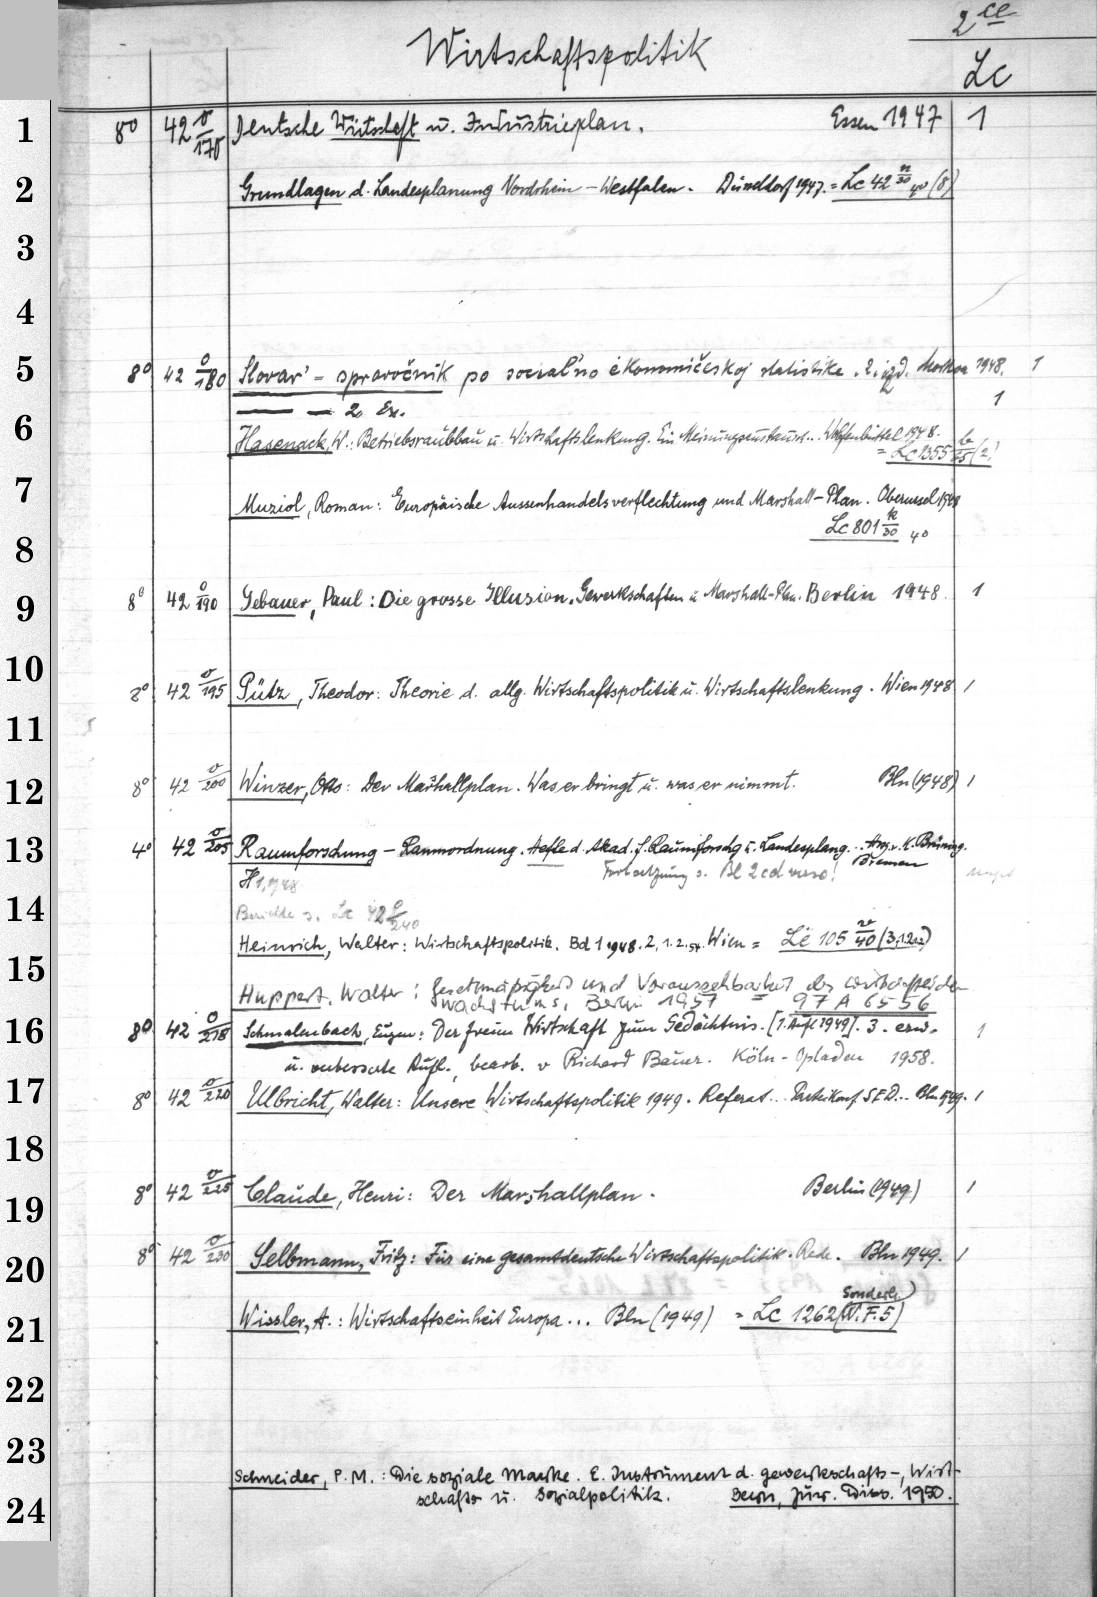 2 ce
Wirtschaftspolitik
Lc
1 8° 42 o/170 Deutsche Wirtschaft u. Industrieplan. Essen 1947 1
2 Grundlagen d. Landesplanung Nordrhein-Westfalen. Düsseldorf 1947. = Lc 42 n/30 4° (8)
3
4
5 8° 42 o/180 Slovar' - spravočnik po social'no ėkonomičeskoj statistike. 2. izd. Moskva 1948. 1
— — 2. Ex. 1
6 Hasenack, W.: Betriebsraubbau u. Wirtschaftslenkung. Ein Meinungsaustausch.. Wolfenbüttel 1948.
= Lc 1355 b/45 (2)
7 Muziol, Roman: Europäische Aussenhandelsverflechtung und Marshall-Plan. Oberursel 1948
Lc 801 k/30 4°
8
9 8° 42 o/190 Gebauer, Paul: Die grosse Illusion. Gewerkschaften u Marshall-Plan. Berlin 1948. 1
10 8° 42 o/195 Pütz, Theodor: Theorie d. allg. Wirtschaftspolitik u. Wirtschaftslenkung. Wien 1948 1
11
12 8° 42 o/200 Winzer, Otto: Der Marshallplan. Was er bringt u. was er nimmt. Bln (1948) 1
13 4° 42 o/205 Raumforschung - Raumordnung. Hefte d. Akad. f. Raumforschg u. Landesplang. .. Hrsg. v. K. Brüning.
Bremen
H 1, 1948 Fortsetzung s. Bl 2cd verso!
14 Berichte s. Lc 42 /240
Heinrich, Walter: Wirtschaftspolitik. Bd 1 1948. 2, 1. 2. 54. Wien = Lc 105 /40 (3, 1.2a2)
15 Huppert, Walter: Gesetzmäßigkeit und Voraussehbarkeit des wirtschaftlichen
Wachstums. Berlin 1957 = 97 A 6556
16 8° 42 o/218 Schmalenbach, Eugen: Der freien Wirtschaft zum Gedächtnis. [1. Aufl 1949]. 3. erw. 1
u. verbesserte Aufl., bearb. v Richard Bauer. Köln-Opladen 1958.
17 8° 42 o/220 Ulbricht, Walter: Unsere Wirtschaftspolitik 1949. Referat.. Parteikonf. SED.. Bln 1949. 1
18
19 8° 42 o/225 Claude, Henri: Der Marshallplan. Berlin (1949) 1
20 8° 42 o/230 Selbmann, Fritz: Für eine gesamtdeutsche Wirtschaftspolitik. Rede. Bln 1949. 1
21 Wissler, A.: Wirtschaftseinheit Europa... Bln (1949) = Lc 1262 (N.F. 5) Sonderh.
22
23
24 Schneider, P. M.: Die soziale Marke. E. Instrument d. gewerkschafts-, Wirt-
schafts u. Sozialpolitik. Bern, Jur. Diss. 1950.